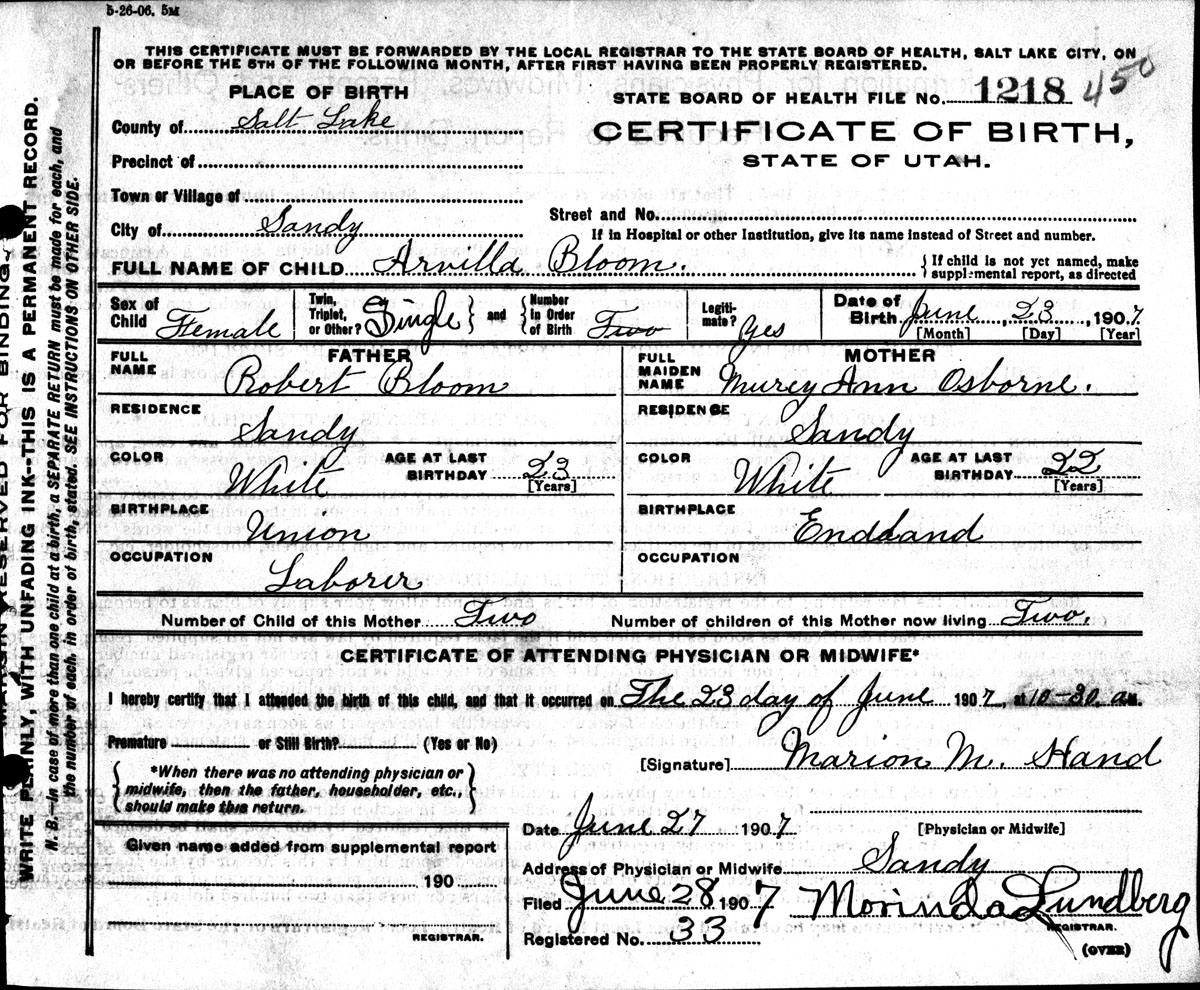 5-26-06. 5M
THIS CERTIFICATE MUST BE FORWARDED BY THE LOCAL REGISTRAR TO THE STATE BOARD OF HEALTH, SALT LAKE CITY, ON
OR BEFORE THE 5TH OF THE FOLLOWING MONTH, AFTER FIRST HAVING BEEN PROPERLY REGISTERED.
PLACE OF BIRTH
County of Salt Lake
Precinct of
Town or Village of
City of Sandy
STATE BOARD OF HEALTH FILE No. 1218 450
CERTIFICATE OF BIRTH,
STATE OF UTAH.
Street and No.
If in Hospital or other Institution, give its name instead of Street and number.
FULL NAME OF CHILD Arvilla Bloom. { If child is not yet named, make supplemental report, as directed
Sex of Child Female
Twin, Triplet, or Other? Single } and { Number in Order of Birth Two
Legiti-mate? Yes
Date of Birth June, 23, 1907
[Month] [Day] [Year]
FATHER
FULL NAME Robert Bloom
RESIDENCE Sandy
COLOR White AGE AT LAST BIRTHDAY 23 [Years]
BIRTHPLACE Union
OCCUPATION Laborer
MOTHER
FULL MAIDEN NAME Murcy Ann Osborne.
RESIDENCE Sandy
COLOR White AGE AT LAST BIRTHDAY 22 [Years]
BIRTHPLACE Endland
OCCUPATION
Number of Child of this Mother Two Number of children of this Mother now living Two.
CERTIFICATE OF ATTENDING PHYSICIAN OR MIDWIFE*
I hereby certify that I attended the birth of this child, and that it occurred on The 23 day of June 1907, at 10-30 am.
Premature or Still Birth? (Yes or No)
*When there was no attending physician or
midwife, then the father, householder, etc.,
should make this return.
[Signature] Marion M. Hand
[Physician or Midwife]
Given name added from supplemental report
190
REGISTRAR.
Date June 27 1907
Address of Physician or Midwife Sandy
Filed June 28 1907 Morinda Lundberg
REGISTRAR.
Registered No. 33
(OVER)
MARGIN RESERVED FOR BINDING.
WRITE PLAINLY, WITH UNFADING INK--THIS IS A PERMANENT RECORD.
N. B.—In case of more than one child at birth, a SEPARATE RETURN must be made for each, and
the number of each, in order of birth, stated. SEE INSTRUCTIONS ON OTHER SIDE.